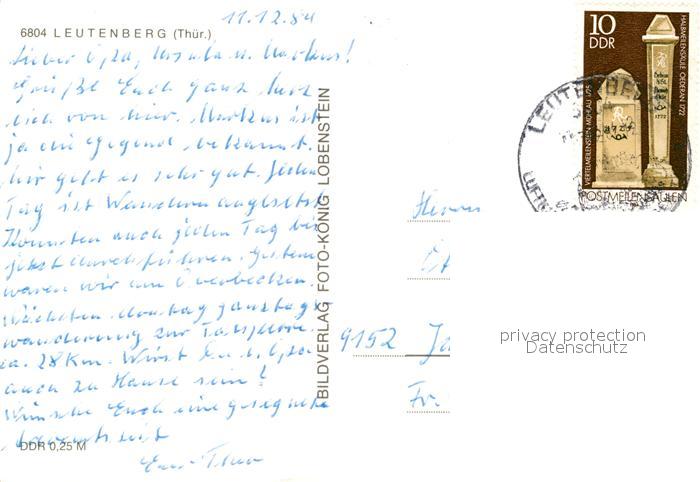 11.12.84
6804 LEUTENBERG (Thür.)
Lieber Opa, Ursula u. Markus!
Grüße Euch ganz herz
lich von hier. Markus ist
ja die Gegend bekannt.
Mir geht es sehr gut. Jeden
Tag ist Wandern angesetzt
Konnten auch jeden Tag bis
jetzt durchführen. Gestern
waren wir am Oberbecken.
Nächsten Montag ganztags
wanderung zur Talsperre.
ca. 28 Km. Wirst Du l. Opa
auch zu Hause sein!
Wünsche Euch eine gesegnete
Adventszeit
DDR 0,25 M
Euer
BILDVERLAG FOTO-KÖNIG LOBENSTEIN
10
DDR
VIERTELMEILENSTEIN MÜHLAU 1725
HALBMEILENSÄULE OEDERAN 1722
POSTMEILENSÄULEN
LEUTENBE
Herrn
9152 Ja
Fr.
privacy protection
Datenschutz